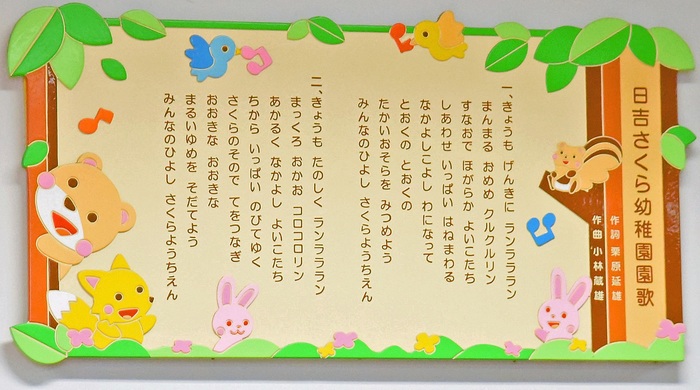 日吉さくら幼稚園園歌
作詞 栗原延雄
作曲 小林蔵雄
一、きょうも げんきに ランラララン
まんまる おめめ クルクルリン
すなおで ほがらか よいこたち
しあわせ いっぱい はねまわる
なかよしこよし わになって
とおくの とおくの
たかいおそらを みつめよう
みんなのひよし さくらようちえん
二、きょうも たのしく ランラララン
まっくろ おかお コロコロリン
あかるく なかよし よいこたち
ちから いっぱい のびてゆく
さくらのそので てをつなぎ
おおきな おおきな
まるいゆめを そだてよう
みんなのひよし さくらようちえん